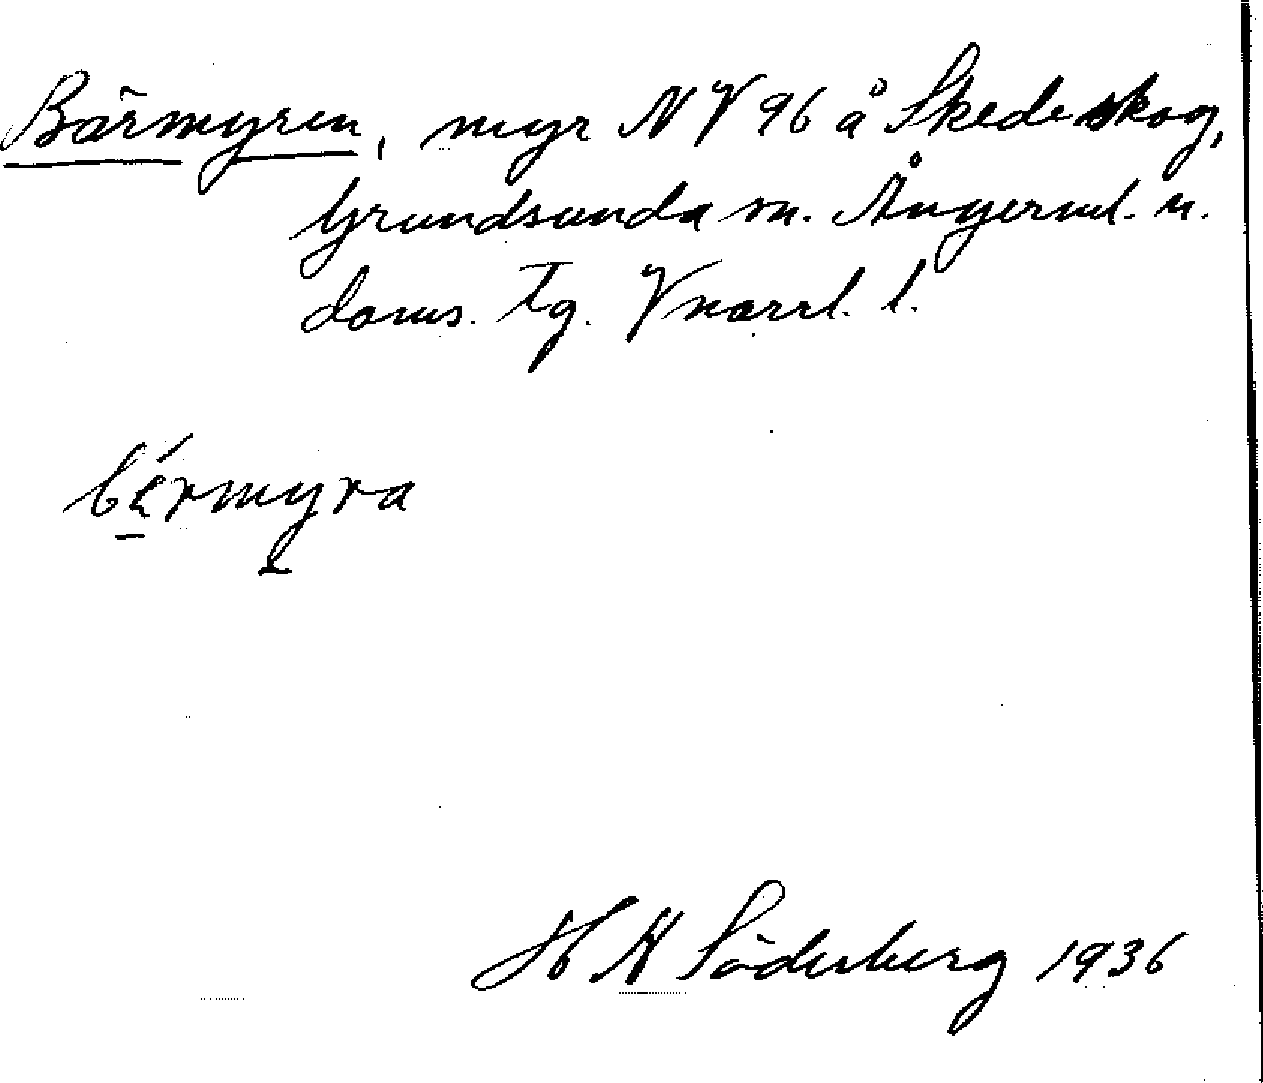 Bärmyren, myr N V 96 å Skedeskog,
Grundsunda sn. Ångerml. n.
doms. tg. Vnorrl. l.
bérmyra
H A Söderberg 1936